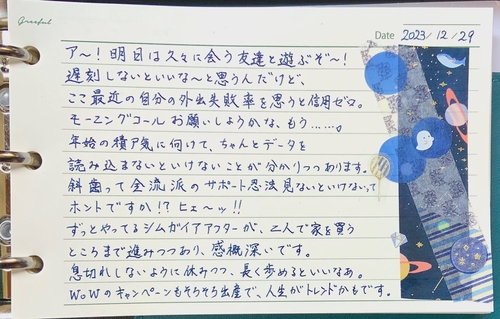 Graceful
Date 2023/12/29
ア～！明日は久々に会う友達と遊ぶぞ～！
遅刻しないといいな～と思うんだけど、
ここ最近の自分の外出失敗率を思うと信用ゼロ。
モーニングコールお願いしようかな、もう……。
年始の積ア気に向けて、ちゃんとデータを
読み込まないといけないことが分かりつつあります。
斜歯って全流派のサポート忍法見ないといけないって
ホントですか！？ヒェ～ッ！！
ずっとやってるシムガイアアフターが、2人で家を買う
ところまで進みつつあり、感慨深いです。
息切れしないように休みつつ、長く歩めるといいなあ。
WoWのキャンペーンもそろそろ出産で、人生がトレンドかもです。